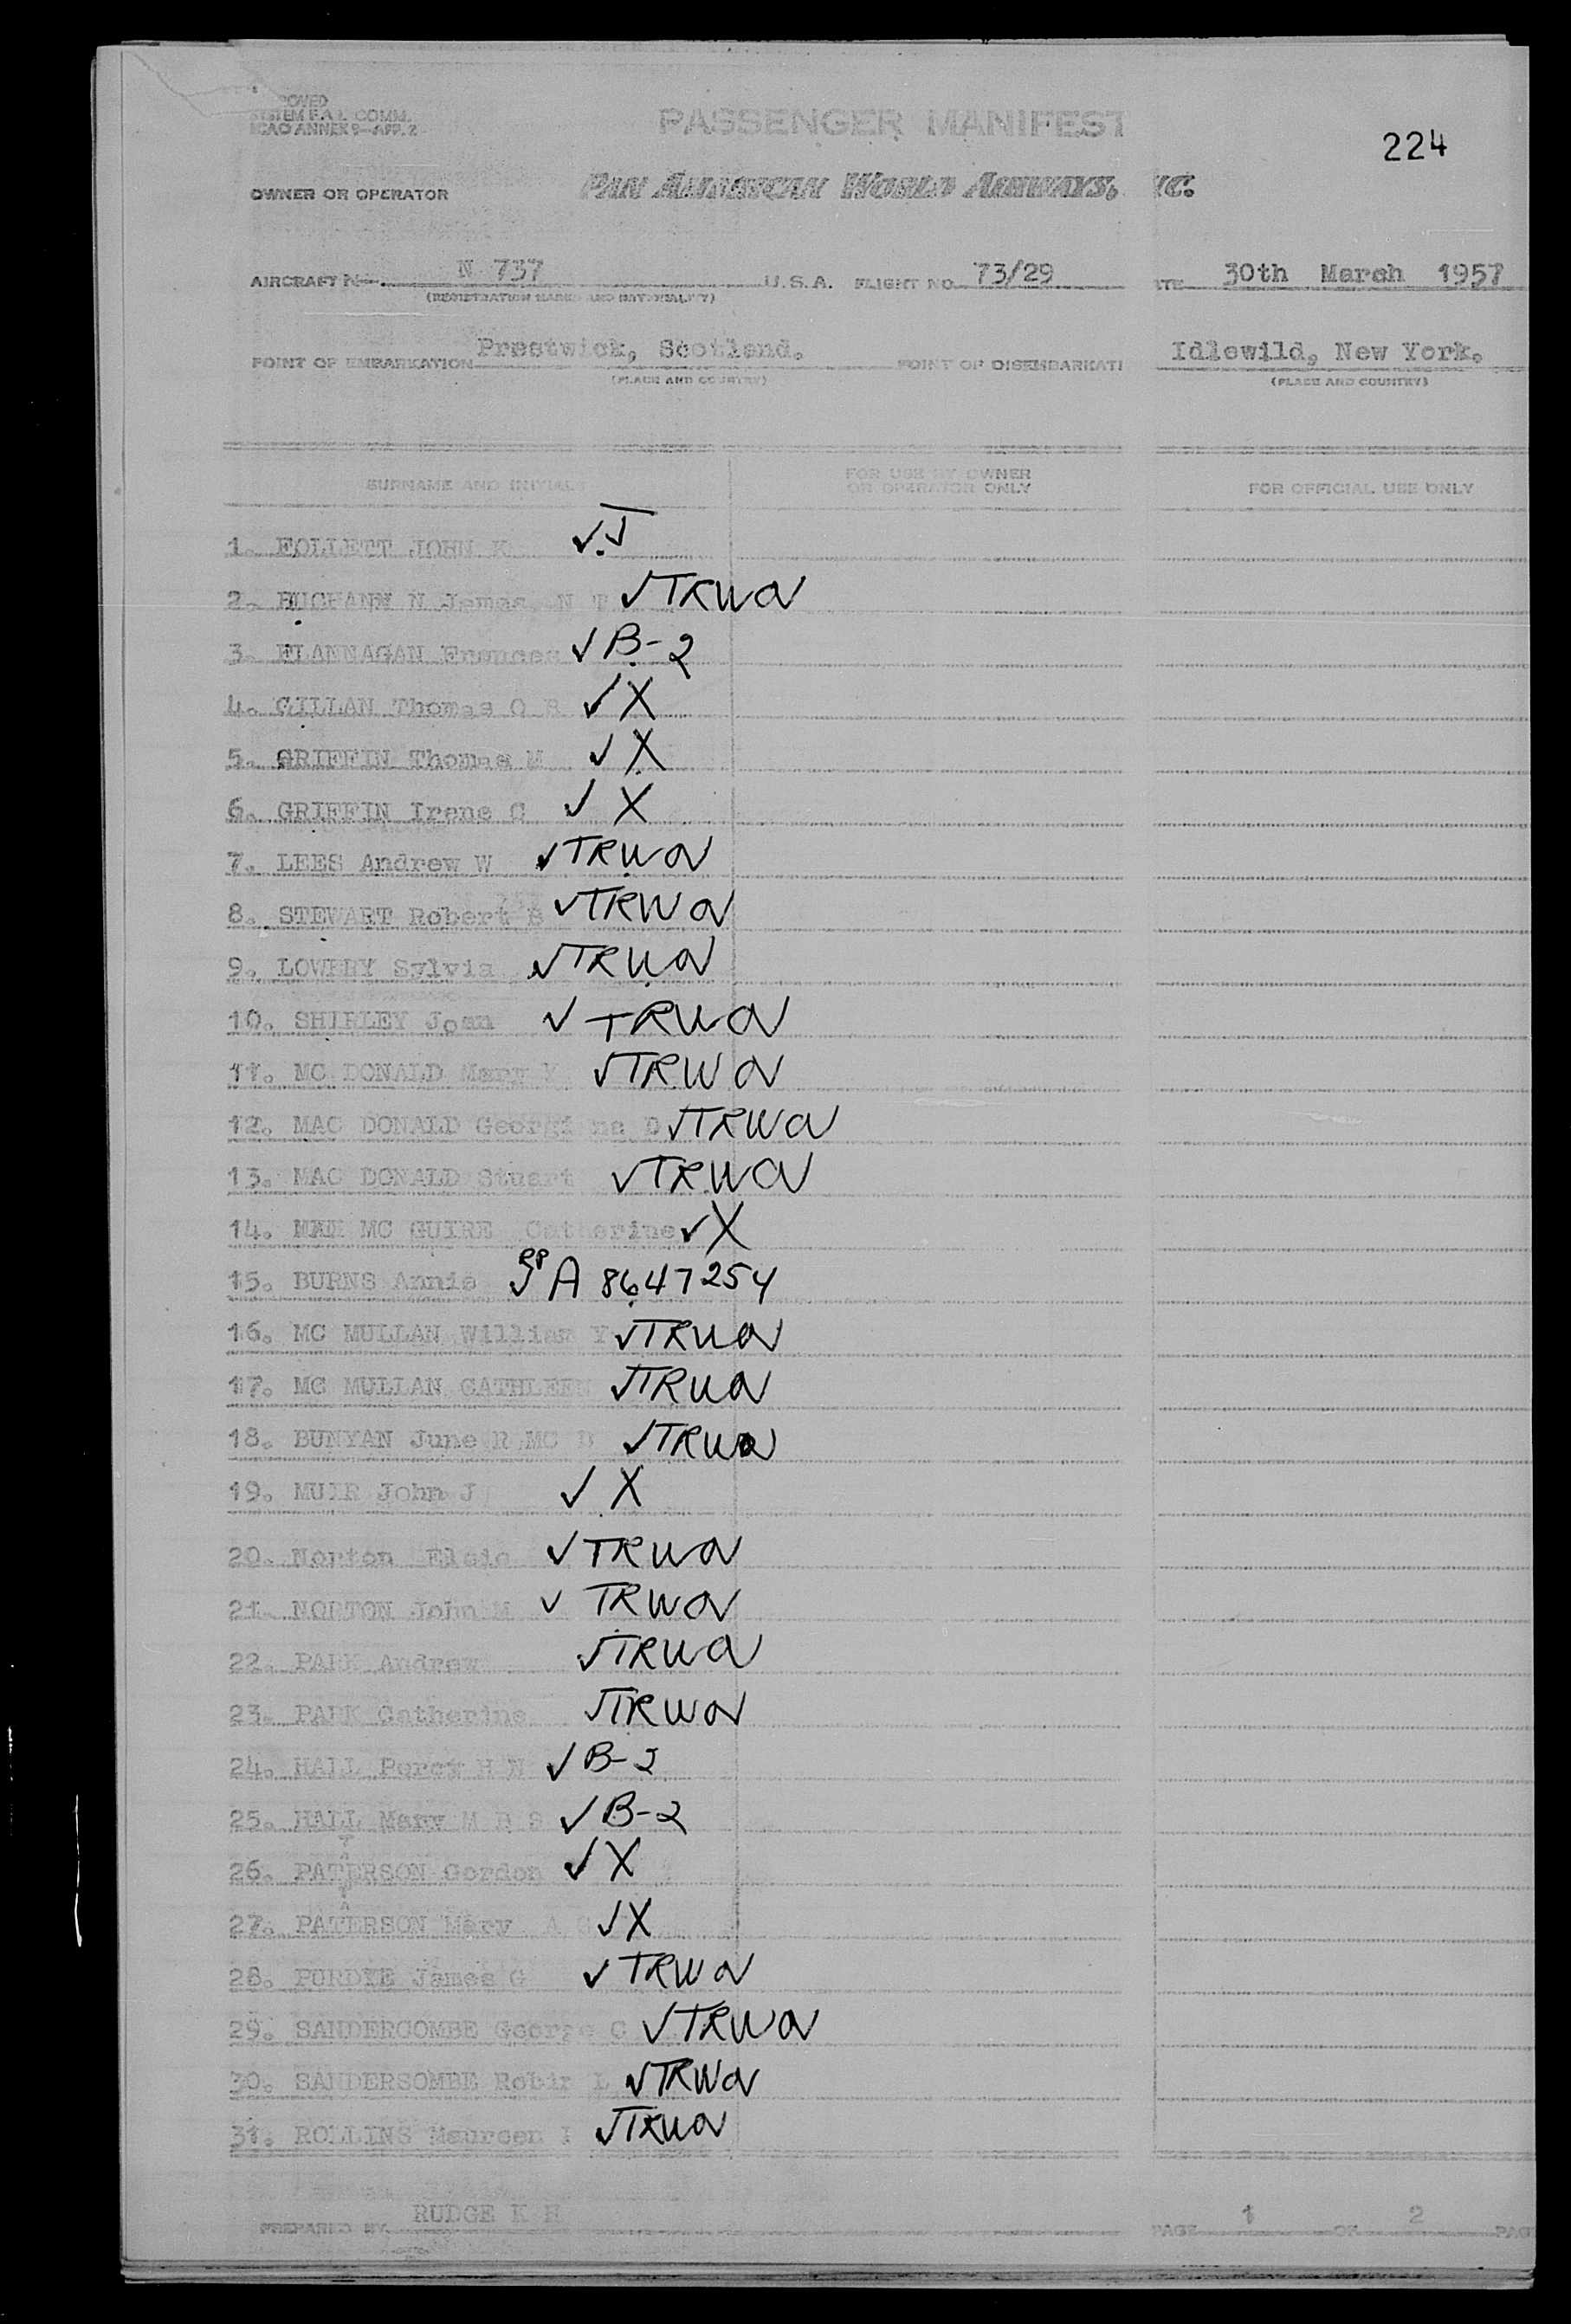 SYSTEM F.A.L. COMM.
ICAO ANNEX 9-APP. 2
PASSENGER MANIFEST
224
OWNER OR OPERATOR PAN AMERICAN WORLD AIRWAYS,
AIRCRAFT No. N 737 U.S.A. FLIGHT NO. 73/29 30th March 1957
(REGISTRATION MARKS AND NATIONALITY)
POINT OF EMBARKATION Prestwick, Scotland. POINT OF DISEMBARKATI Idlewild, New York.
(PLACE AND COUNTRY) (PLACE AND COUNTRY)
SURNAME AND INITIALS FOR USE BY OWNER OR OPERATOR ONLY FOR OFFICIAL USE ONLY
1. FOLLETT JOHN K ✓
2. James N T ✓TRWOV
3. FLANNAGAN Frances ✓ B-2
4. GILLAN Thomas O B ✓ X
5. GRIFFIN Thomas M ✓ X
6. GRIFFIN Irene C ✓ X
7. LEES Andrew W ✓TRWOV
8. STEWART Robert B ✓TRWOV
9. LOWERY Sylvia ✓TRWOV
10. SHIRLEY Joan ✓ TRWOV
11. MC DONALD Mary ✓TRWOV
12. MAC DONALD Georgi na D ✓TRWOV
13. MAC DONALD Stuart ✓TRWOV
14. MC GUIRE Catherine ✓X
15. BURNS Annie ✓ PP A 8647254
16. MC MULLAN William Y ✓TRWOV
17. MC MULLAN CATHLEEN ✓TRWOV
18. BUNYAN June R MC D ✓TRWOV
19. MUIR John J ✓ X
20. Norton Elsie ✓ TRWOV
21. NORTON John M ✓ TRWOV
22. PARK Andrew ✓TRWOV
23. PARK Catherine ✓TRWOV
24. HALL Percy H N ✓ B-2
25. HALL Mary M B S ✓ B-2
26. PATERSON Gordon ✓ X
27. PATERSON Mary A ✓X
28. PURDYE James G ✓ TRWOV
29. SANDERCOMBE George C ✓TRWOV
30. SANDERSOMBE Robin L ✓TRWOV
31. ROLLINS Maureen I ✓TRWOV
PREPARED BY RUDGE K H PAGE 1 OF 2 PAG